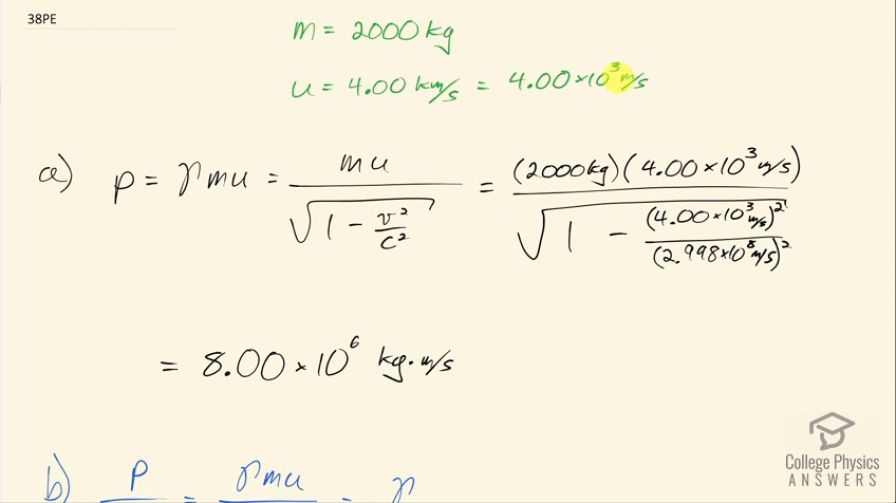 38PE
m = 2000 kg
u = 4.00 km/s = 4.00×10³ m/s
a) p = γmu = mu / √(1 − v²/c²) = (2000kg)(4.00×10³ m/s) / √(1 − (4.00×10³ m/s)²/(2.998×10⁸ m/s)²)
= 8.00×10⁶ kg·m/s
b) p = γmu = γ
College Physics
ANSWERS